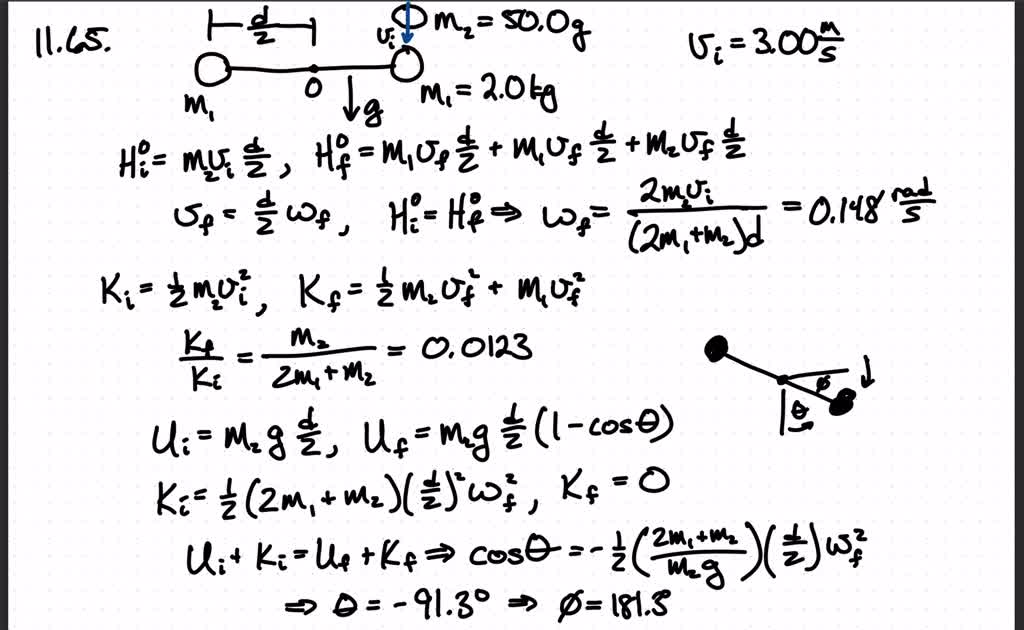 11.65.
d/2
v_i
m₂ = 50.0g
v_i = 3.00 m/s
m₁
O
g
m₁ = 2.0 kg
H_i^o = m₂v_i d/2, H_f^o = m₁v_f d/2 + m₁v_f d/2 + m₂v_f d/2
v_f = d/2 ω_f, H_i^o = H_f^o ⇒ ω_f = 2m₂v_i/((2m₁+m₂)d) = 0.148 rad/s
K_i = ½ m₂v_i², K_f = ½ m₂v_f² + m₁v_f²
K_f/K_i = m₂/(2m₁+m₂) = 0.0123
φ
θ
U_i = m₂g d/2, U_f = m₂g d/2 (1-cosθ)
K_i = ½(2m₁+m₂)(d/2)²ω_f², K_f = 0
U_i + K_i = U_f + K_f ⇒ cosθ = -½((2m₁+m₂)/(m₂g))(d/2)ω_f²
⇒ θ = -91.3° ⇒ φ = 181.3°